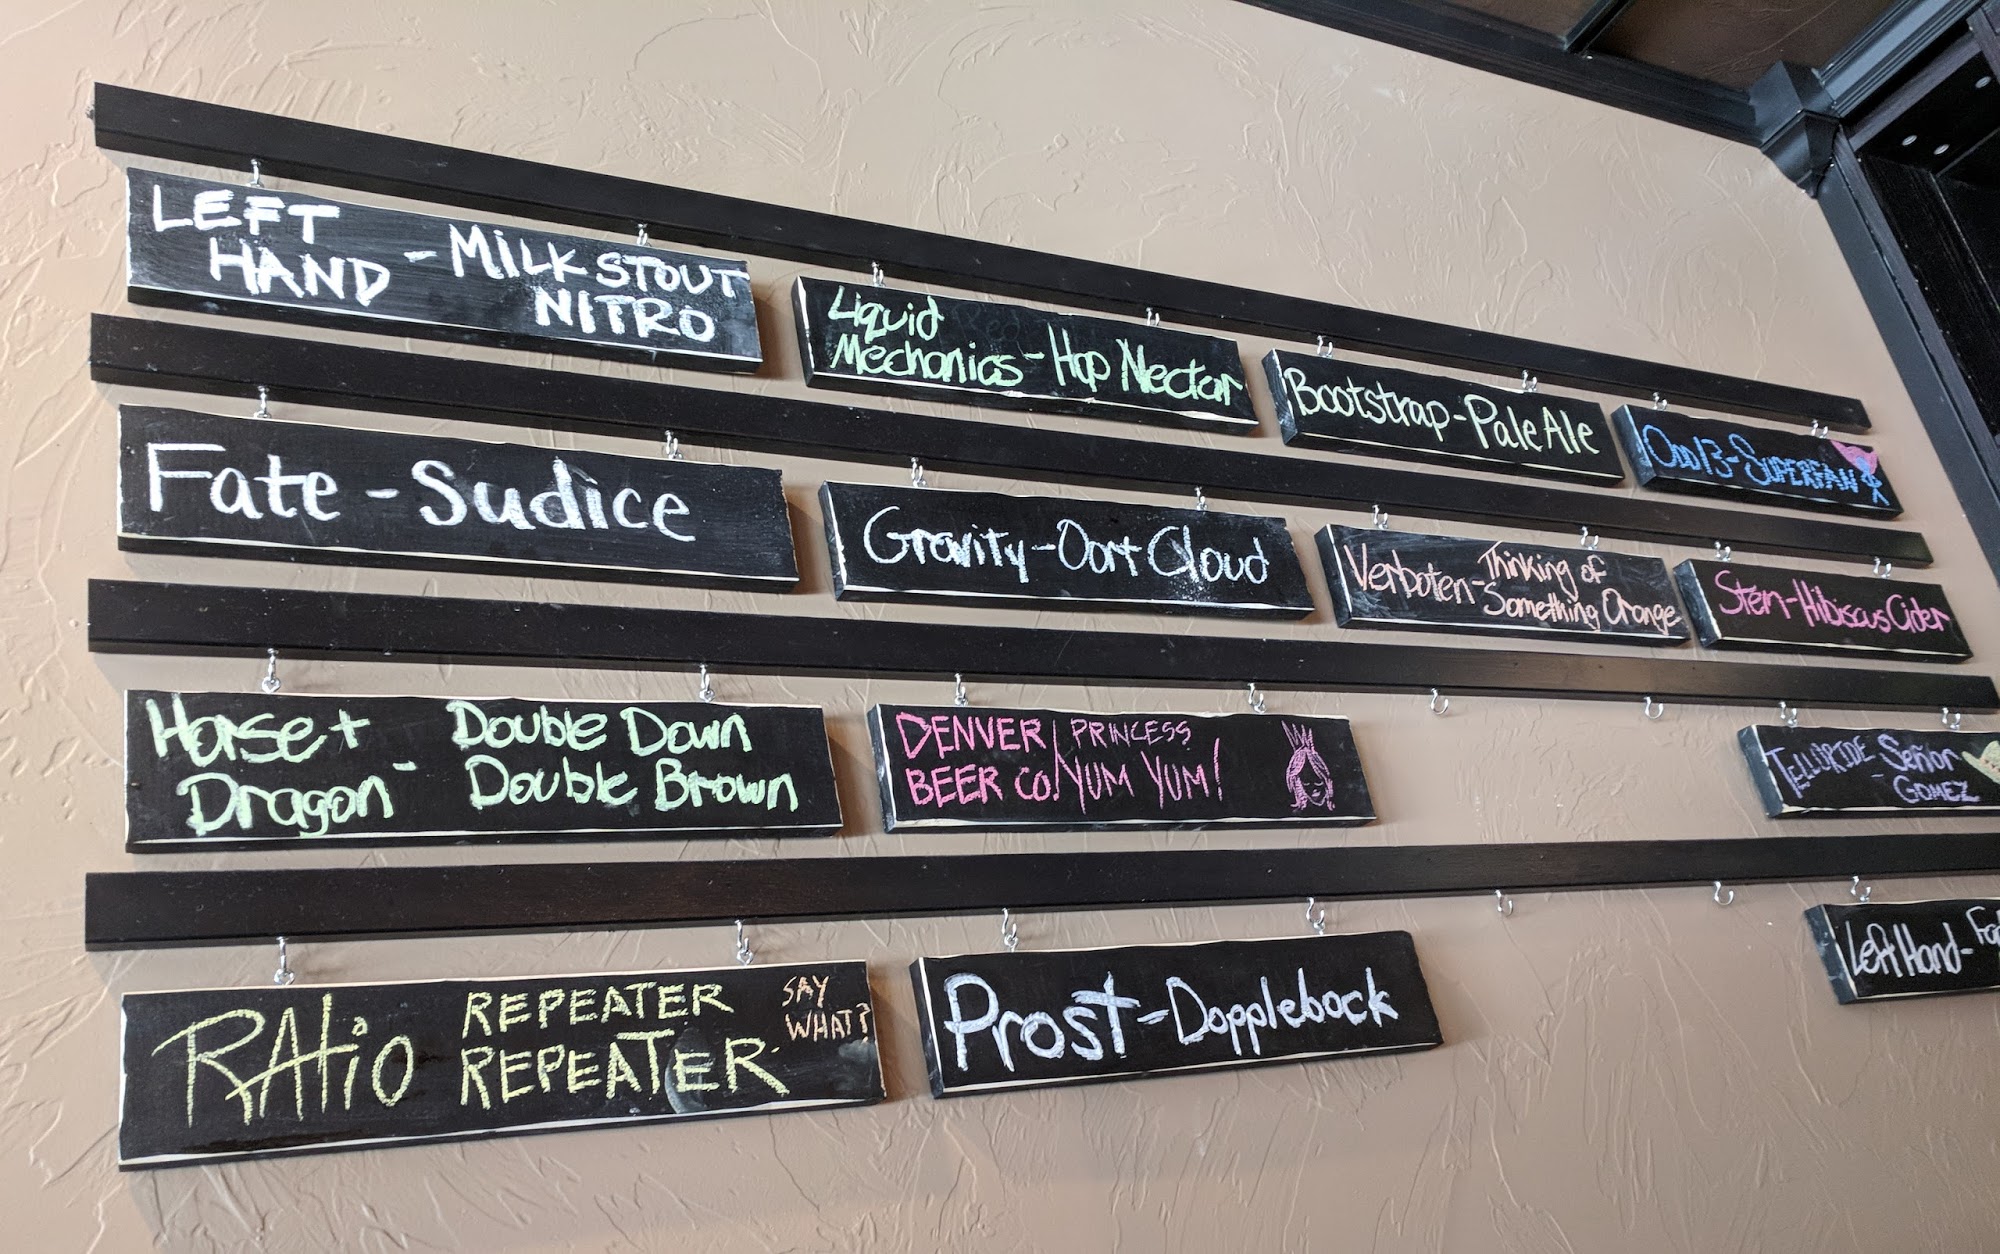 LEFT HAND - MILK STOUT NITRO
Liquid Mechanics - Hop Nectar
Bootstrap - Pale Ale
Odd13 - SUPERFAN
Fate - Sudice
Gravity - Oort Cloud
Verboten - Thinking of Something Orange
Stem - Hibiscus Cider
Horse + Dragon - Double Down Double Brown
DENVER BEER CO! PRINCESS YUM YUM!
TELLURIDE - Señor GOMEZ
RATIO REPEATER REPEATER SAY WHAT?
Prost - Dopplebock
Left Hand -